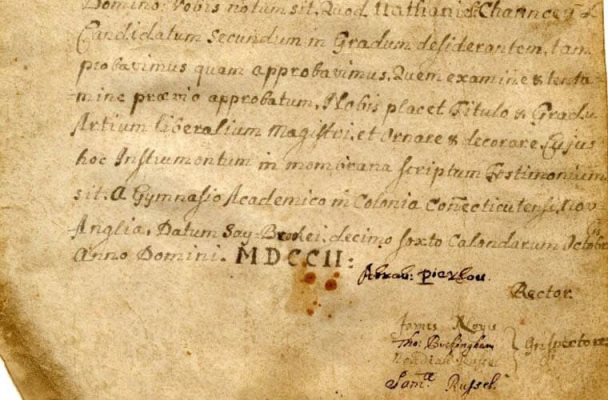 Domino: Vobis notum sit. Quod Nathaniel Chauncey
Candidatum Secundum in Gradum desiderantem, tam
probavimus quam approbavimus. Quem examine & tenta
mine prævio approbatum, Nobis placet Titulo & Gradu
Artium Liberalium Magistri. et Ornare & decorare. Cujus
hoc Instrumentum in membrana scriptum Testimonium
sit. A Gymnasio Academico in Colonia Connecticutensi. Nov
Anglia. Datum Say-Brookei. decimo sexto Calendarum Octobr
Anno Domini. MDCCII:
Abrah: Pierson
Rector.
James Noyes
Tho: Buckingham
Inspectores
Noadiah Russel
Sam:ll Russel.